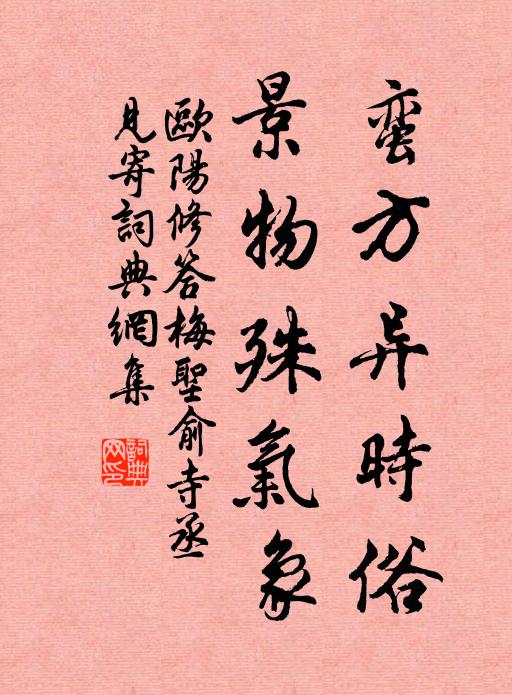 蛮方异時俗
景物殊氣象
歐陽修答梅聖俞寺丞
見寄詞典網集
詞典
网印